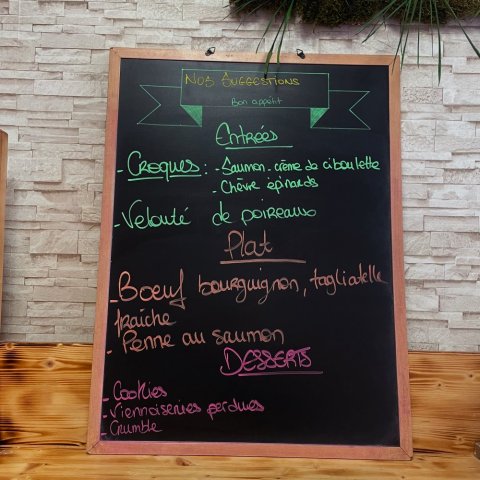 Nos Suggestions
Bon appétit
Entrées
- Croques : - Saumon - crème de ciboulette
- Chèvre épinards
- Velouté de poireaux
Plat
- Boeuf bourguignon, tagliatelle
fraîche
- Penne au saumon
DESSERTS
- Cookies
- Viennoiseries perdues
- Crumble